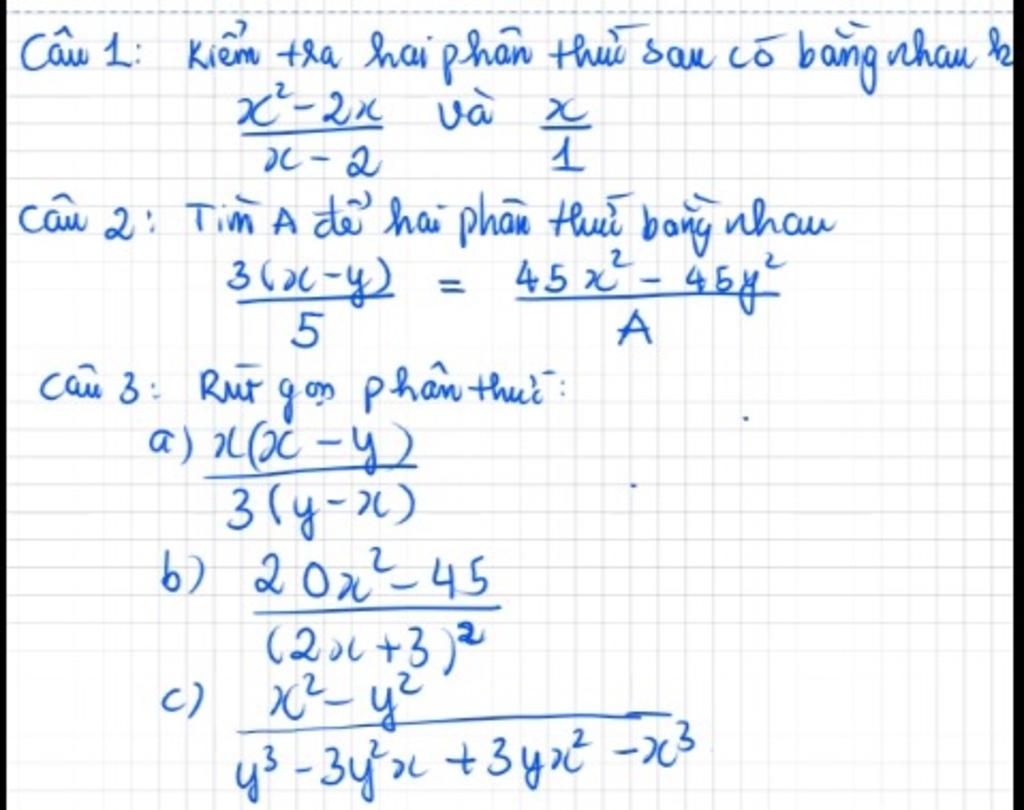 Câu 1: Kiểm tra hai phân thức sau có bằng nhau k
x² - 2x / x - 2 và x / 1
Câu 2: Tìm A để hai phân thức bằng nhau
3(x - y) / 5 = 45x² - 45y² / A
Câu 3: Rút gọn phân thức:
a) x(x - y) / 3(y - x)
b) 20x² - 45 / (2x + 3)²
c) x² - y² / y³ - 3y²x + 3yx² - x³